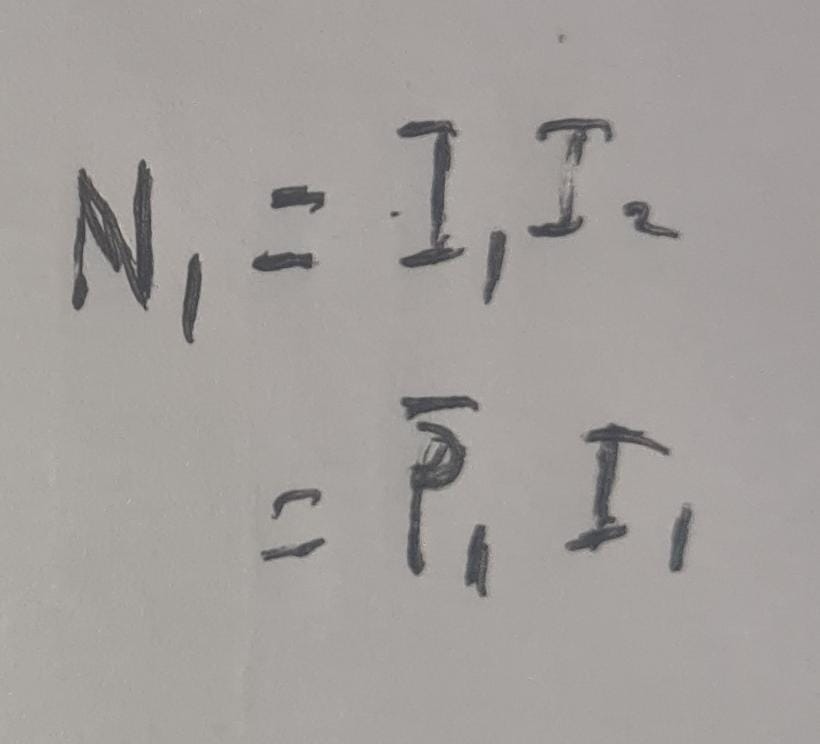 N₁ = I₁ I₂
= P̅₁ I₁